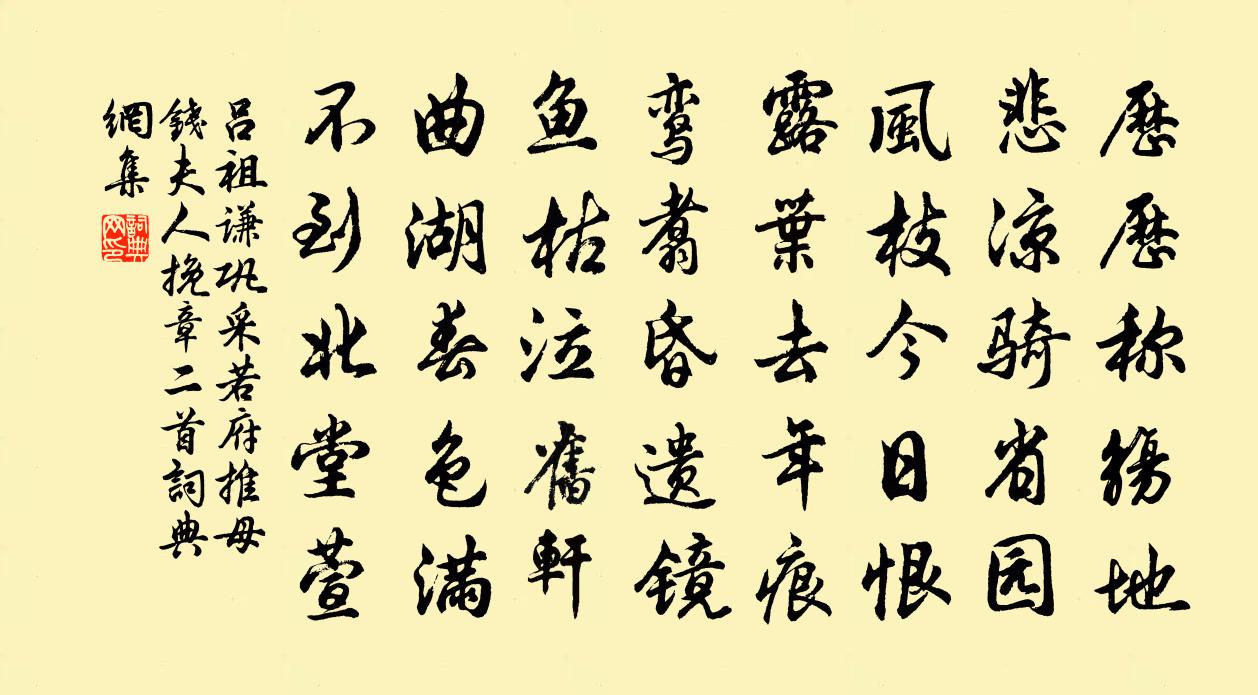 歷歷称觴地
悲涼骑省园
風枝今日恨
露葉去年痕
鸾翥昏遗镜
鱼枯泣舊軒
曲湖春色满
不到北堂萱
吕祖谦巩采若府推母
錢夫人挽章二首詞典
網集
詞典網印